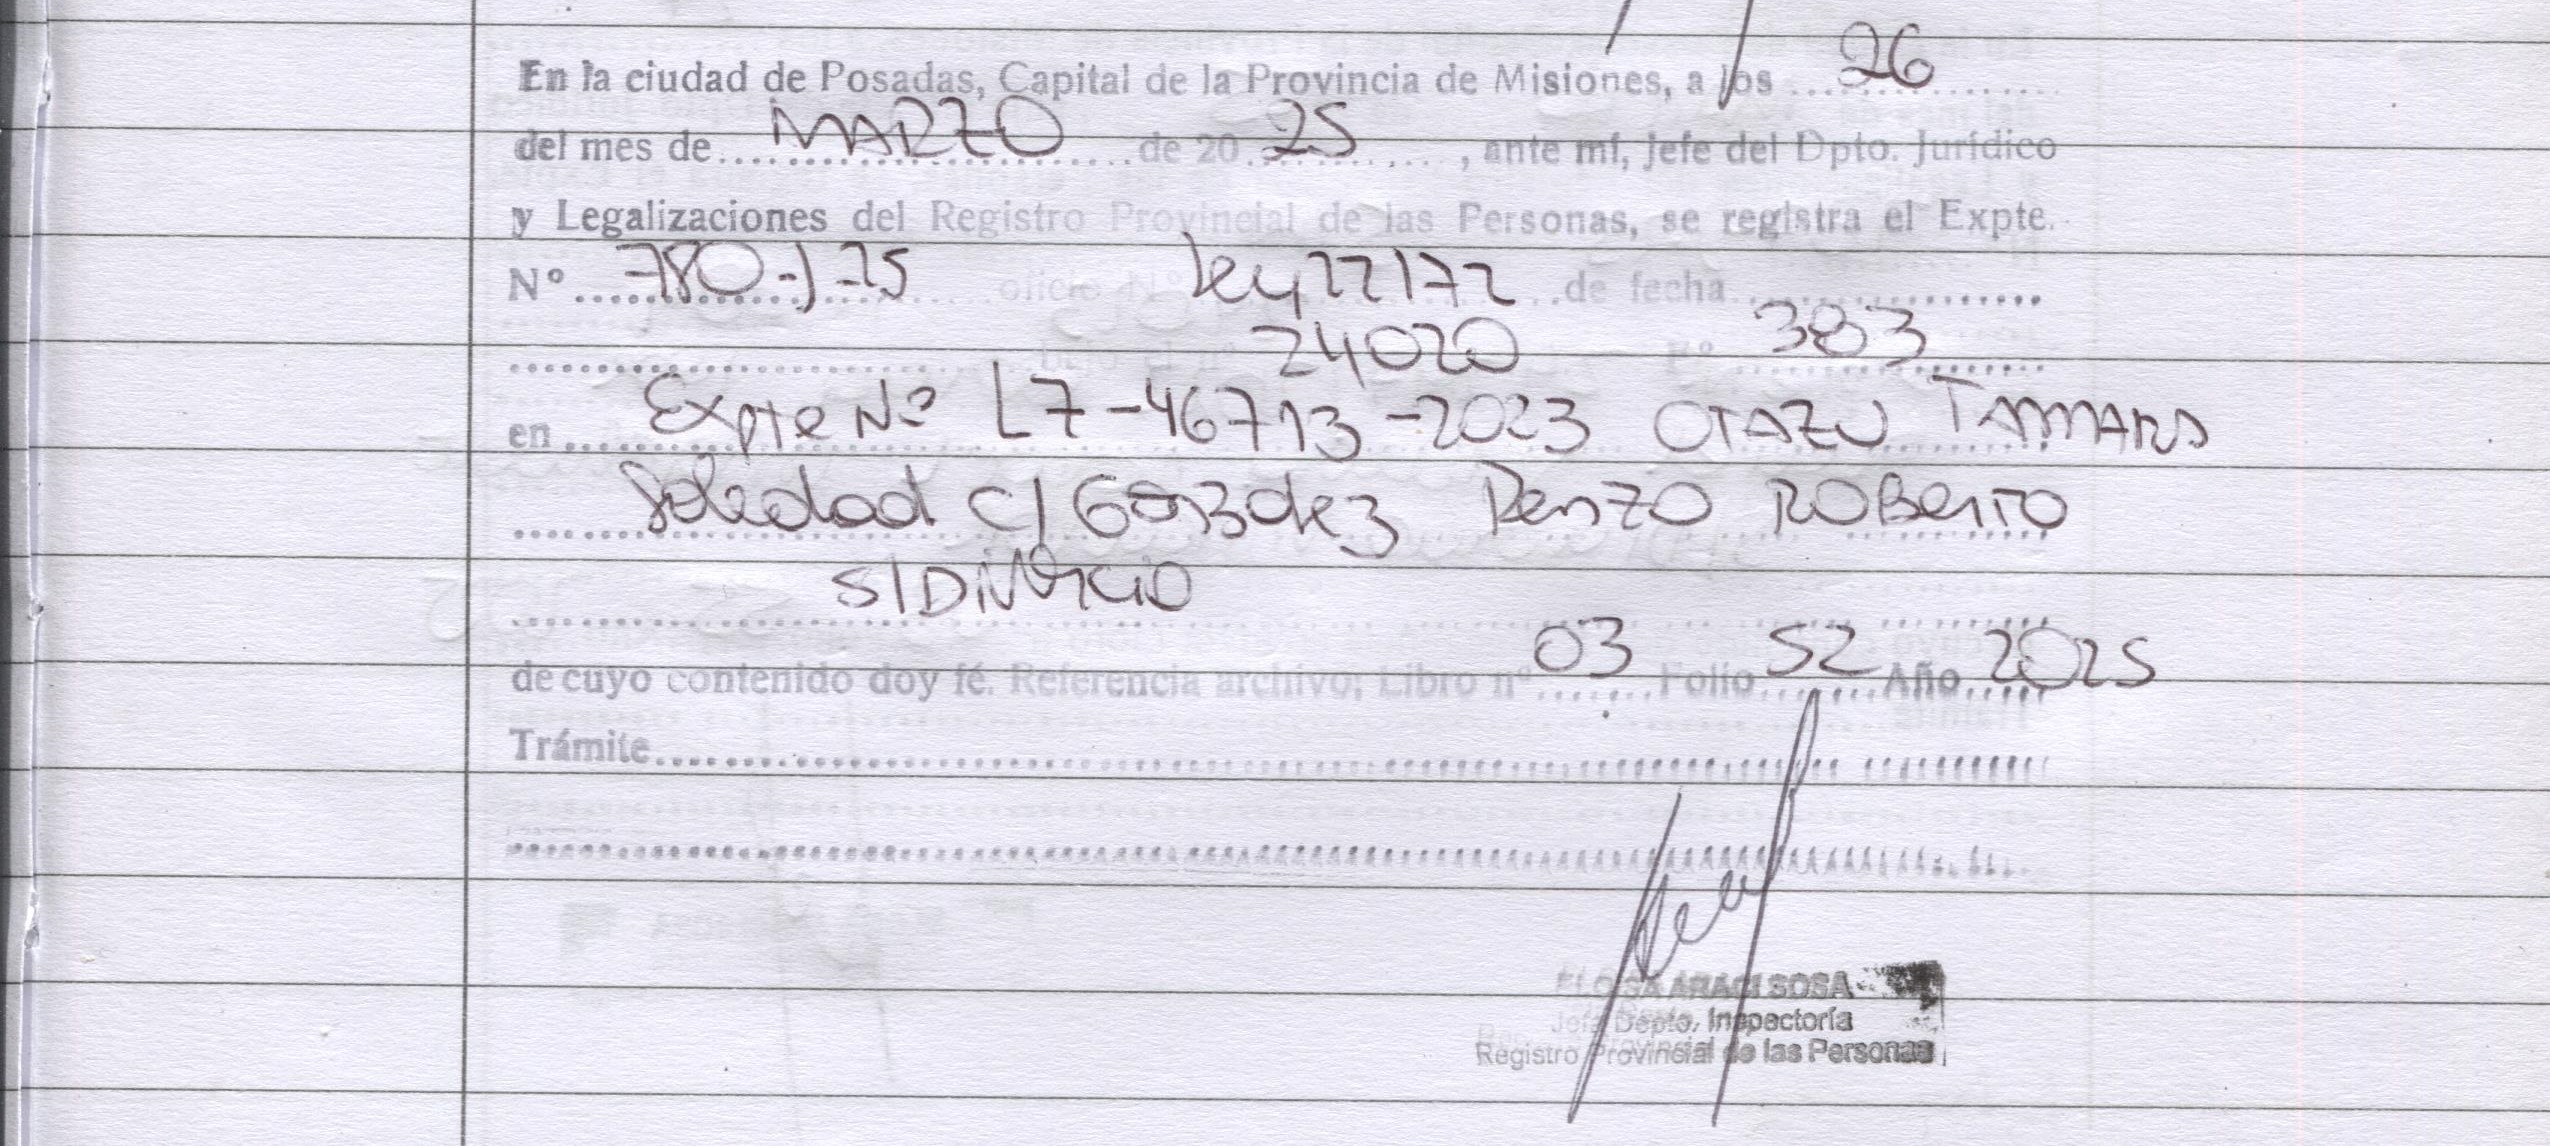 En la ciudad de Posadas, Capital de la Provincia de Misiones, a los 26
del mes de MARZO de 20 25, ante mí, Jefe del Dpto. Jurídico
y Legalizaciones del Registro Provincial de las Personas, se registra el Expte.
Nº 780-J-25 oficio Nº Ley 22172 de fecha
24020 Fº 383
en Expte Nº L7-46713-2023 OTAZU TAMARA
Soledad c/ Renzo ROBERTO
S/DIVORCIO
de cuyo contenido doy fé. Referencia archivo; Libro nº 03 Folio 52 Año 2025
Trámite
ELOISA ARACI SOSA
Jefa Depto. Inspectoría
Registro Provincial de las Personas